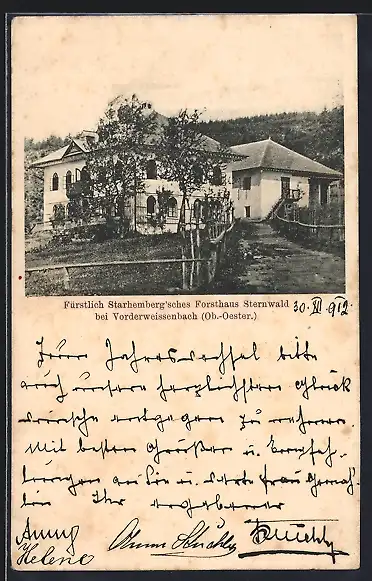 Fürstlich Starhemberg'sches Forsthaus Sternwald
bei Vorderweissenbach (Ob.-Oester.)
30. XII. 912
Zum Jahreswechsel bitte
auch unsere herzlichsten Glück
wünsche entgegen zu nehmen.
Mit besten Grüßen u. Empfeh-
lungen an Sie u. werte Frau Gemah-
lin Ihr ergebener
Anna
Helene